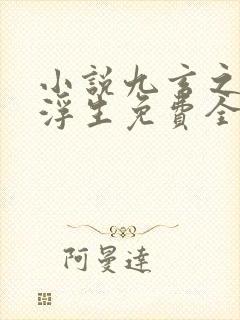 小說九玄之
浮生免費全
阿曼達